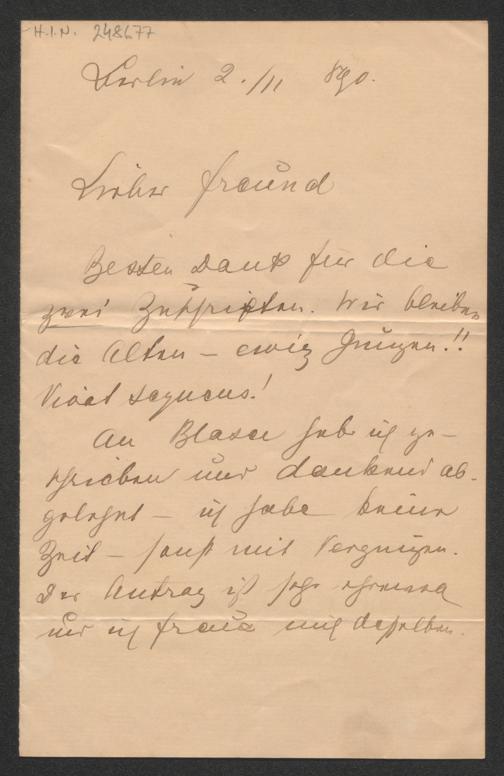 H.I.N. 248677
Berlin 2./11 890.
Lieber Freund
Besten Dank für die
zwei Zuschriften. Wir bleiben
die Alten – ewig Jungen!!
Vivat sequens!
An Blasel habe ich ge-
schrieben und dankend ab-
gelehnt – ich habe keine
Zeit – sonst mit Vergnügen.
Der Antrag ist sehr ehrend
und ich freue mich desselben.